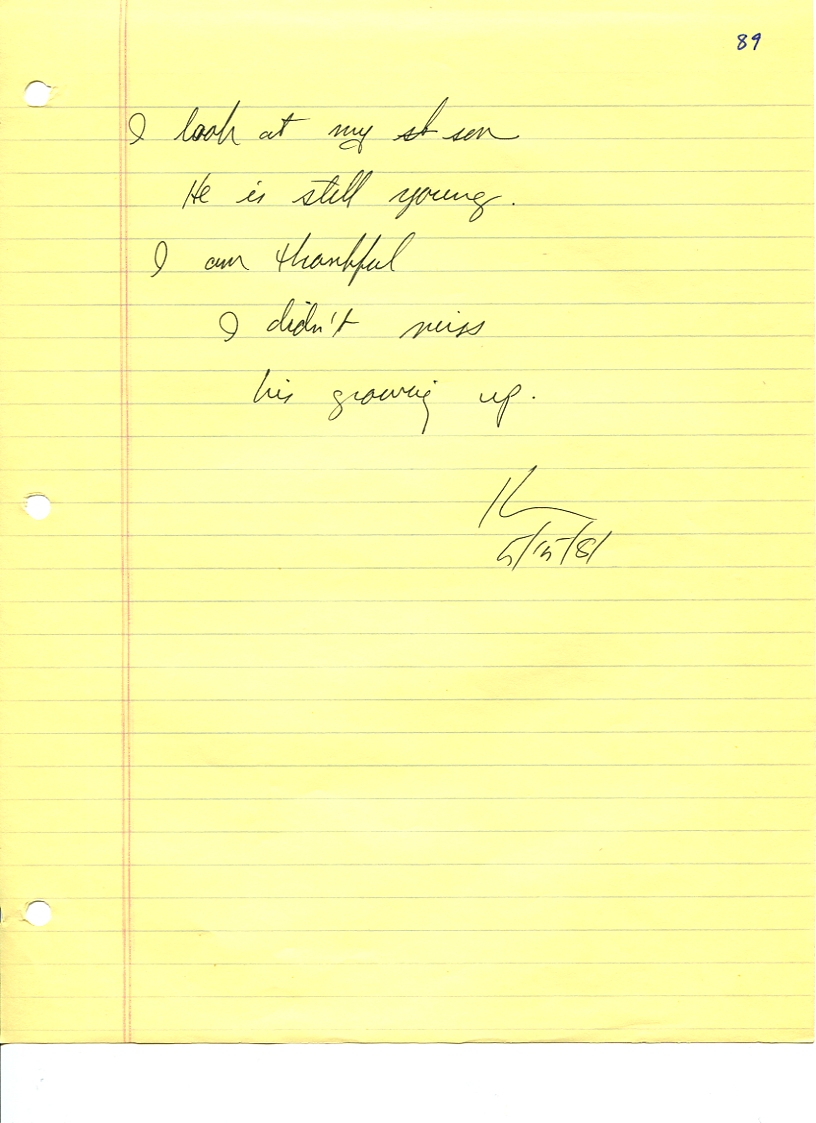 89
I look at my st son
He is still young.
I am thankful
I didn't miss
his growing up.
5/15/81